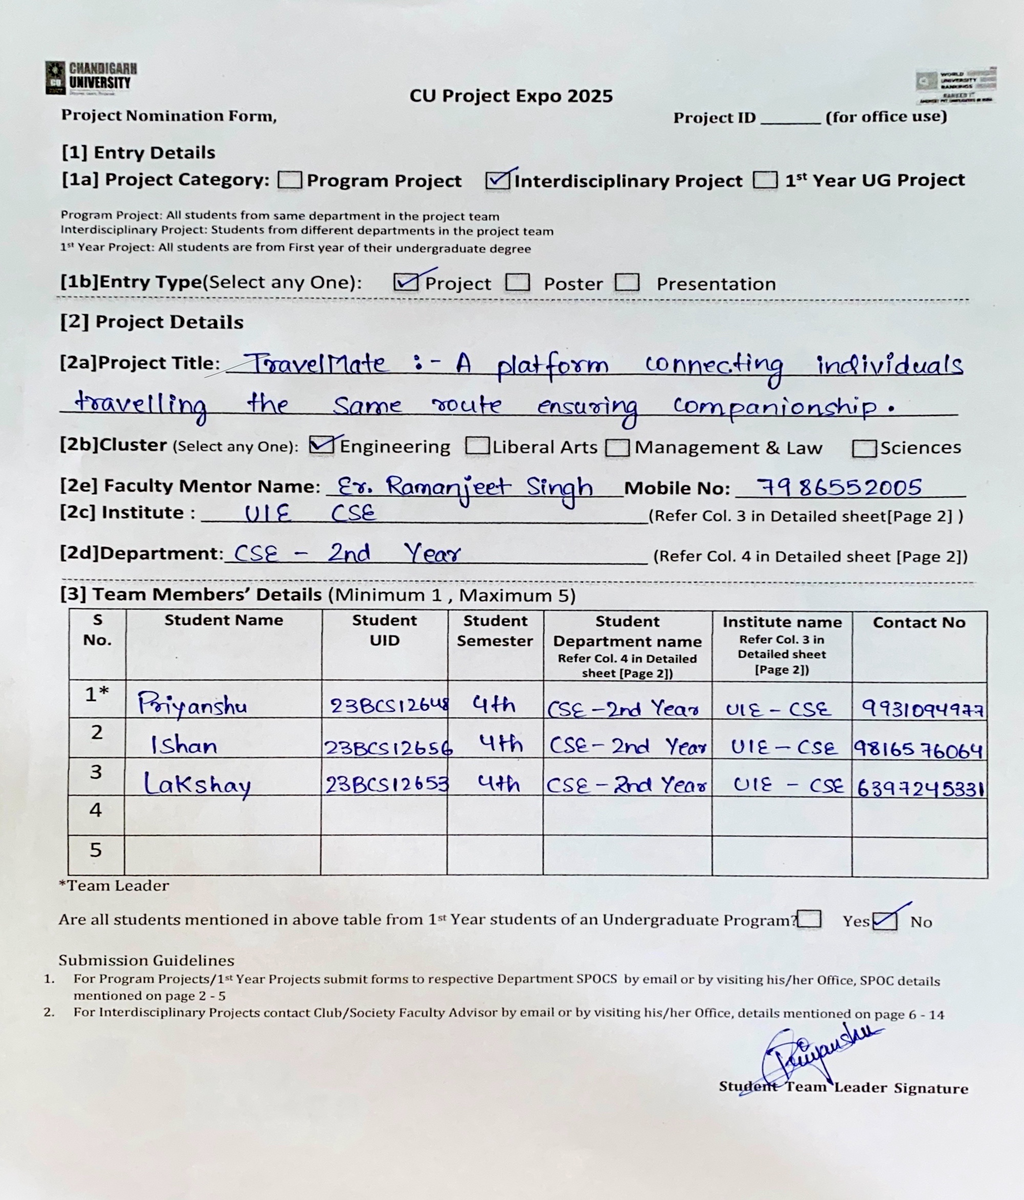 CHANDIGARH
UNIVERSITY
CU
WORLD
UNIVERSITY
RANKINGS
CU Project Expo 2025
Project Nomination Form,
Project ID ______ (for office use)
[1] Entry Details
[1a] Project Category: Program Project Interdisciplinary Project 1st Year UG Project
Program Project: All students from same department in the project team
Interdisciplinary Project: Students from different departments in the project team
1st Year Project: All students are from First year of their undergraduate degree
[1b]Entry Type(Select any One): Project Poster Presentation
[2] Project Details
[2a]Project Title: TravelMate :- A platform connecting individuals
travelling the same route ensuring companionship.
[2b]Cluster (Select any One): Engineering Liberal Arts Management & Law Sciences
[2e] Faculty Mentor Name: Er. Ramanjeet Singh Mobile No: 7986552005
[2c] Institute : UIE CSE (Refer Col. 3 in Detailed sheet[Page 2] )
[2d]Department: CSE - 2nd Year (Refer Col. 4 in Detailed sheet [Page 2])
[3] Team Members' Details (Minimum 1 , Maximum 5)
S No. Student Name Student UID Student Semester Student Department name Refer Col. 4 in Detailed sheet [Page 2]) Institute name Refer Col. 3 in Detailed sheet [Page 2]) Contact No
1* Priyanshu 23BCS12648 4th CSE-2nd Year UIE - CSE 9931094977
2 Ishan 23BCS12656 4th CSE- 2nd Year UIE - CSE 9816576064
3 Lakshay 23BCS12653 4th CSE - 2nd Year UIE - CSE 6397245331
4
5
*Team Leader
Are all students mentioned in above table from 1st Year students of an Undergraduate Program? Yes No
Submission Guidelines
1. For Program Projects/1st Year Projects submit forms to respective Department SPOCS by email or by visiting his/her Office, SPOC details
mentioned on page 2 - 5
2. For Interdisciplinary Projects contact Club/Society Faculty Advisor by email or by visiting his/her Office, details mentioned on page 6 - 14
Priyanshu
Student Team Leader Signature